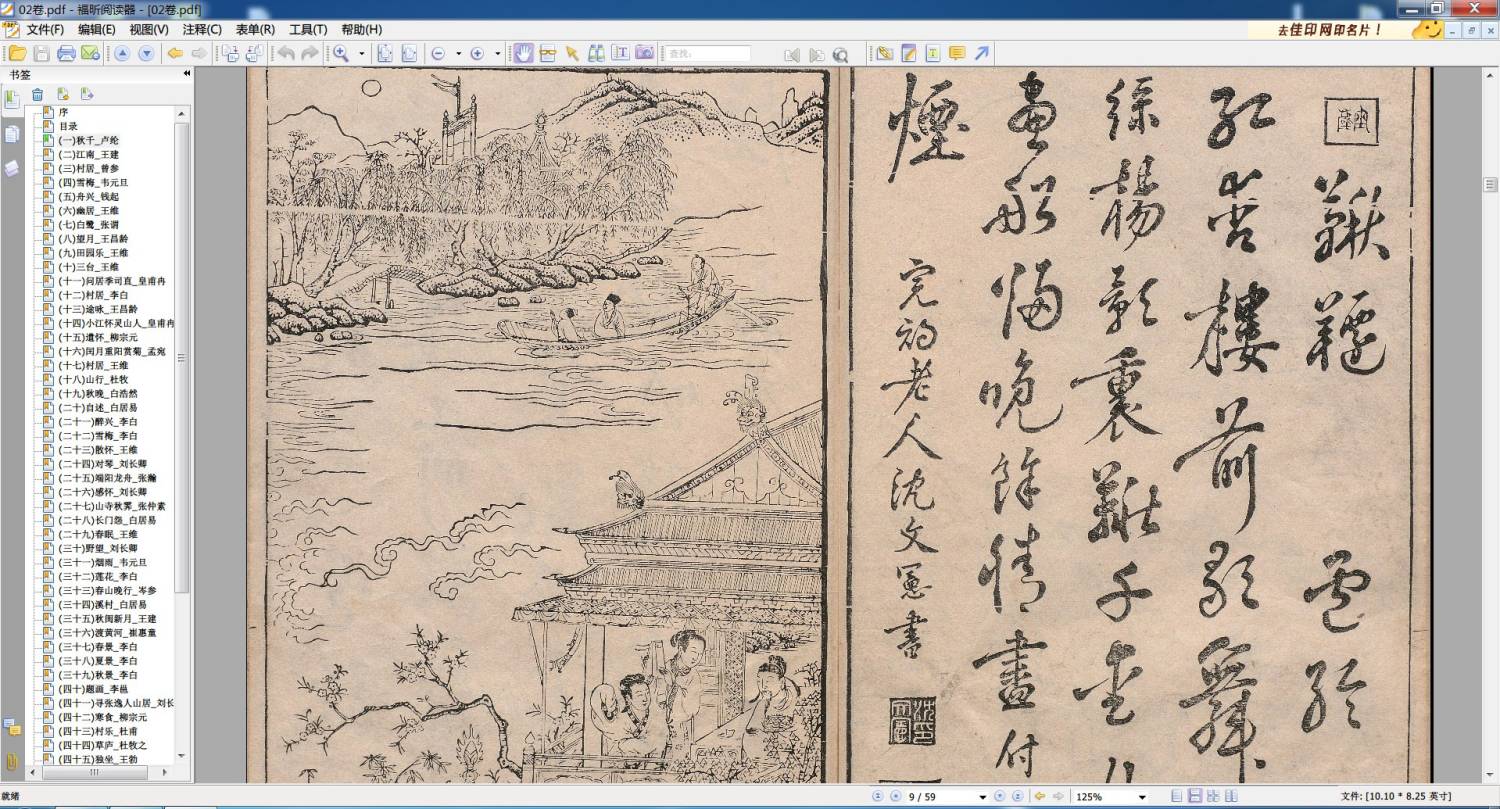 02卷.pdf - 福昕阅读器 - [02卷.pdf]
文件(F) 编辑(E) 视图(V) 注释(C) 表单(R) 工具(T) 帮助(H)
去佳印网印名片！
查找:
书签
序
目录
(一)秋千_卢纶
(二)江南_王建
(三)村居_曾参
(四)雪梅_韦元旦
(五)舟兴_钱起
(六)幽居_王维
(七)白鹭_张谓
(八)望月_王昌龄
(九)田园乐_王维
(十)三台_王维
(十一)问居季司直_皇甫冉
(十二)村居_李白
(十三)途咏_王昌龄
(十四)小江怀灵山人_皇甫冉
(十五)遣怀_柳宗元
(十六)闰月重阳赏菊_孟宛
(十七)村居_王维
(十八)山行_杜牧
(十九)秋晚_白浩然
(二十)自述_白居易
(二十一)醉兴_李白
(二十二)雪梅_李白
(二十三)散怀_王维
(二十四)对琴_刘长卿
(二十五)端阳龙舟_张瀚
(二十六)感怀_刘长卿
(二十七)山寺秋霁_张仲素
(二十八)长门怨_白居易
(二十九)春眠_王维
(三十)野望_刘长卿
(三十一)烟雨_韦元旦
(三十二)莲花_李白
(三十三)春山晚行_岑参
(三十四)溪村_白居易
(三十五)秋闺新月_王建
(三十六)渡黄河_崔惠童
(三十七)春景_李白
(三十八)夏景_李白
(三十九)秋景_李白
(四十)题画_李邕
(四十一)寻张逸人山居_刘长
(四十二)寒食_柳宗元
(四十三)村乐_杜甫
(四十四)草庐_杜牧之
(四十五)独坐_王勃
鞦韆 盧綸
紅杏樓前歌舞
綠楊影裏鞦千
畫船歸晚餘情盡付
煙
完初老人沈文憲書
沈氏文憲
就绪
9 / 59
125%
文件: [10.10 * 8.25 英寸]